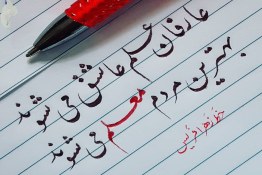 عارفان علم عاشق می شوند
بهترین مردم معلم می شوند